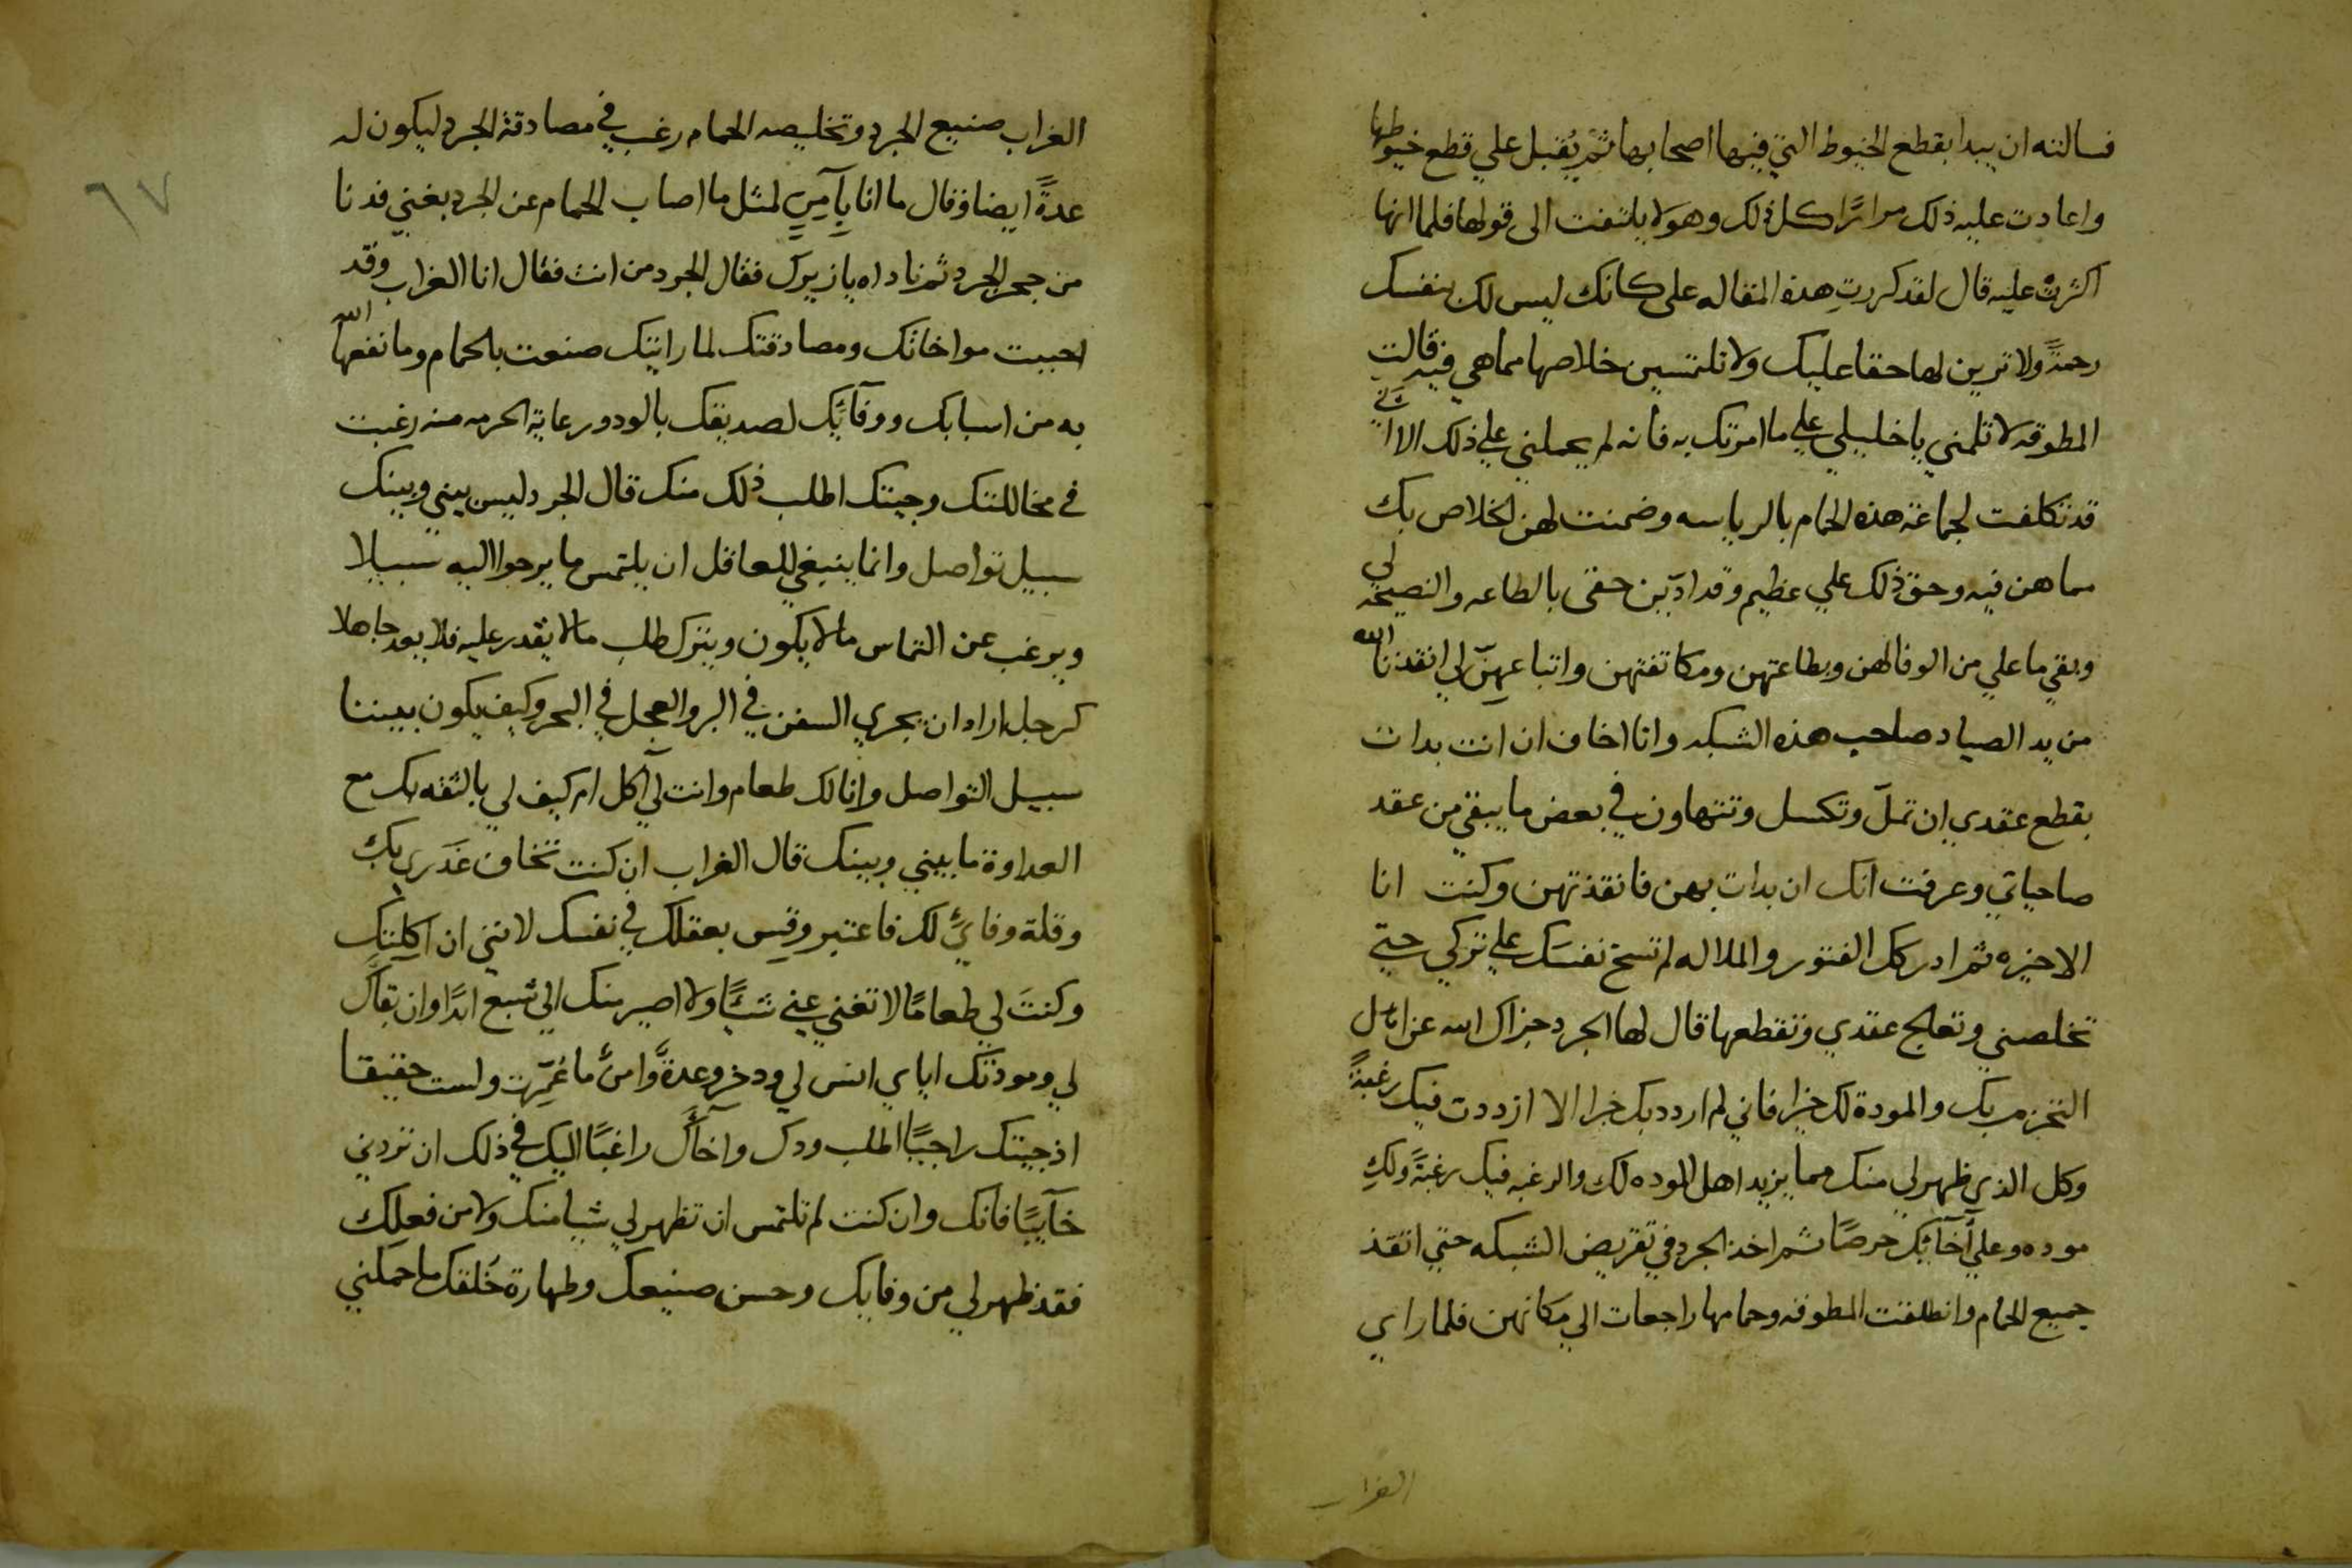 فسالته ان يبدا بقطع الخيوط التي فيها اصحابها ثم يُقبل علي قطع خيوطها
واعادت عليه ذلك مرارًا كل ذلك وهو لا يلتفت الى قولها فلما انها
اكثرتْ عليه قال لقد كررتِ هذة المقاله على كانك ليس لك بنفسك
رحمةً ولا ترين لها حقا عليك ولا تلتمسين خلاصها مما هي فيه قالت
المطوقه لا تلمني يا خليلي علي ما امرتك به فانه لم يحملني علي ذلك الا اني
قد تكلفت لجماعة هذه الحمام بالرياسه وضمنت لهن الخلاص بك
مما هن فيه وحق ذلك علي عظيم وقد ادّين حقى بالطاعه والنصيحة لي
وبقي ما علي من الوفا لهن وبطاعتهن ومكاتفتهن واتباعهنّ لي انقذنا الله
من يد الصياد صاحب هذه الشبكه وانا اخاف ان انت بدات
بقطع عقدي ان تملّ وتكسل وتتهاون في بعض ما يبقي من عقد
صاحباتي وعرفت انك ان بدات بهن فانقذتهن وكنت انا
الاخيره ثم ادركك الفتور والملاله لم تسخ نفسَك علي تركي حتي
تخلصني وتعالج عقدي وتقطعها قال لها الجرد جزاك الله عن
بك والمودة لك خيرا فاني لم ازدد بك خبرا الا ازددت فيك رغبةً
وكل الذي ظهر لي منك مما يزيد اهل الموده لك والرغبه فيك رغبةً ولكِ
موده وعلي آخآئك حرصًا ثم اخذ الجرد في تقريض الشبكه حتي انقذ
جميع الحمام وانطلقت المطوقه وحمامها راجعات الي مكانهن فلما راي
الغراب
٦٧
الغراب صنيع الجرد وتخليصه الحمام رغب في مصادقة الجرد ليكون له
عدةً ايضا وقال ما انا بآمِنٍ لمثل ما اصاب الحمام عن الجرد بغني فدنا
من جحر الجرد ثم ناداه يا زيرك فقال الجرد من انت فقال انا الغراب وقد
احببت مواخاتك ومصادقتك لما رايتك صنعت بالحمام وما نفعها الله
به من اسبابك ووفآئك لصديقك بالود ورعاية الحرمه منه رغبت
في مخاللتك وجيتك اطلب ذلك منك قال الجرد ليس بيني وبينك
سبيل تواصل وانما ينبغي للعاقل ان يلتمس ما يرجوا اليه سبيلا
ويرغب عن التماس ما لا يكون ويترك طلب ما لا يقدر عليه فلا يعد جاهلا
كرجل اراد ان يجري السفن في البر والعجل في البحر وكيف يكون بيننا
سبيل التواصل وانا لك طعام وانت لي آكل ام كيف لي بالثقه بك مع
العداوة ما بيني وبينك قال الغراب ان كنت تخاف غَدَري بك
وقلة وفائي لك فاعتبر وقِس بعقلك في نفسك لانني ان اكلتك
وكنتَ لي طعامًا لا تغني عني شيًا ولا اصير منك الي شبع ابدًا وان بقاك
لي ومودتك اياي انس لي وذخر وعدةً وامنٌ ما عُمِّرت ولست حقيقا
اذ جيتك راجيًا اطلب ودك واخآك راغبًا اليك في ذلك ان تردني
خآيبًا فانك وان كنت لم تلتمس ان تظهر لي شيا منك ولا من فعلك
فقد ظهر لي من وفايك وحسن صنيعك وطهارة خُلقك ما حملني